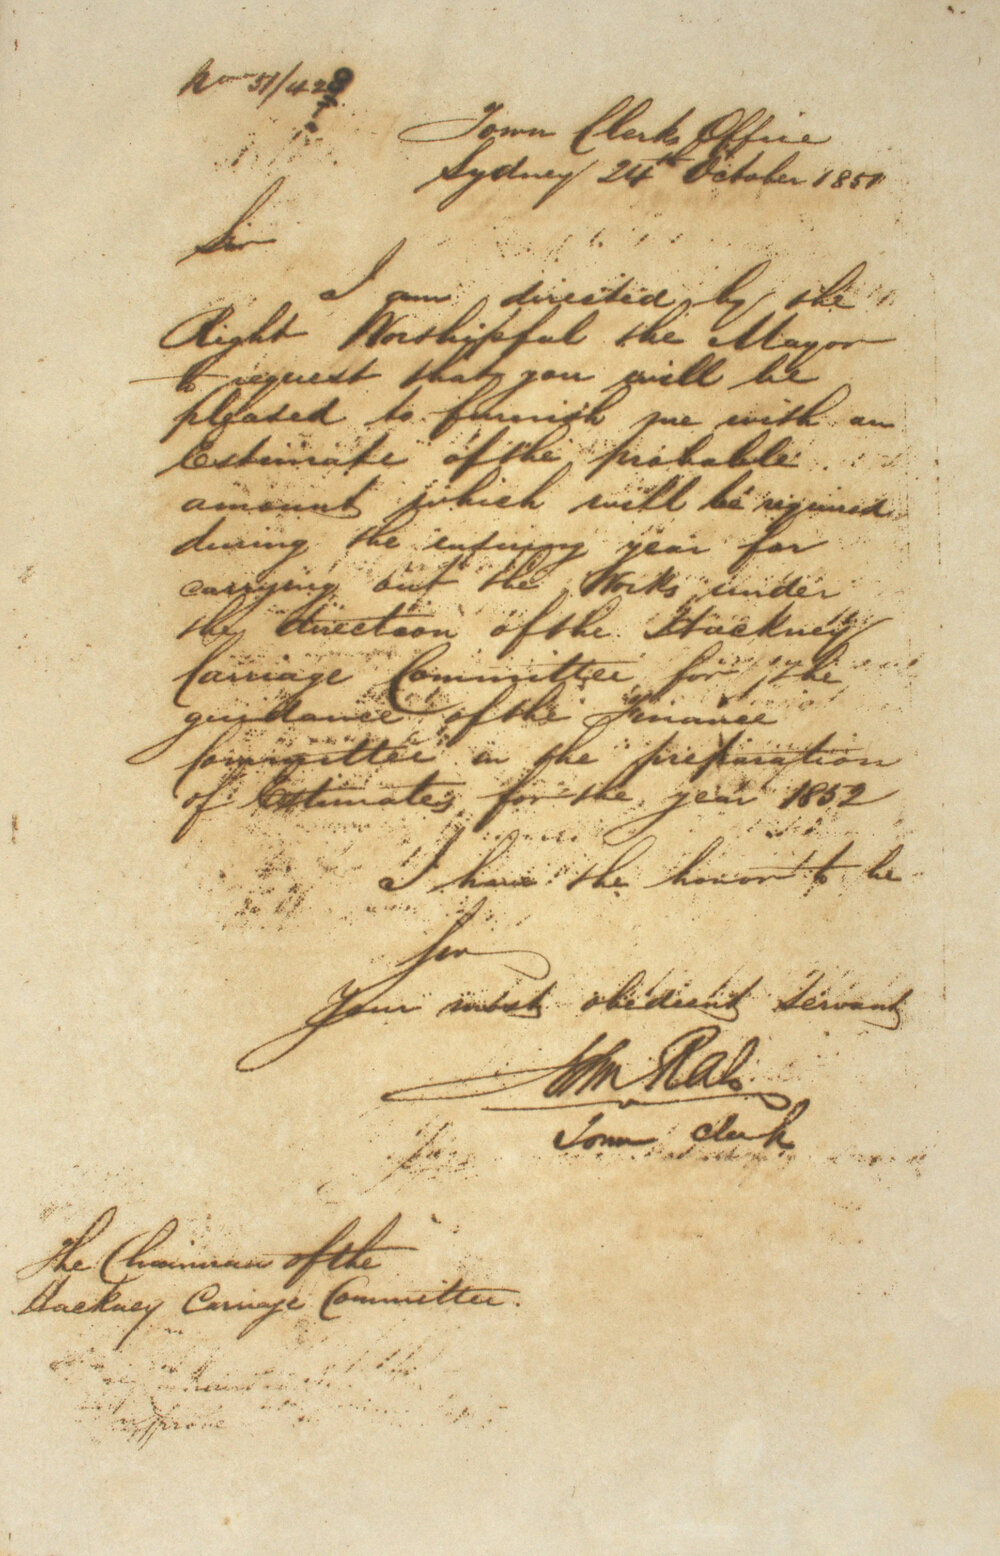 51/42
Town Clerks Office
Sydney 24th October 1851
Sir
I am directed by the
Right Worshipful the Mayor
to request that you will be
pleased to furnish me with an
Estimate of the probable
amount which will be required
during the ensuing year for
carrying out the Works under
the direction of the Hackney
Carriage Committee for the
guidance of the Finance
Committee in the preparation
of Estimates for the year 1852
I have the honor to be
Sir
Your most obedient Servant
John Rae
Town Clerk
The Chairman of the
Hackney Carriage Committee.